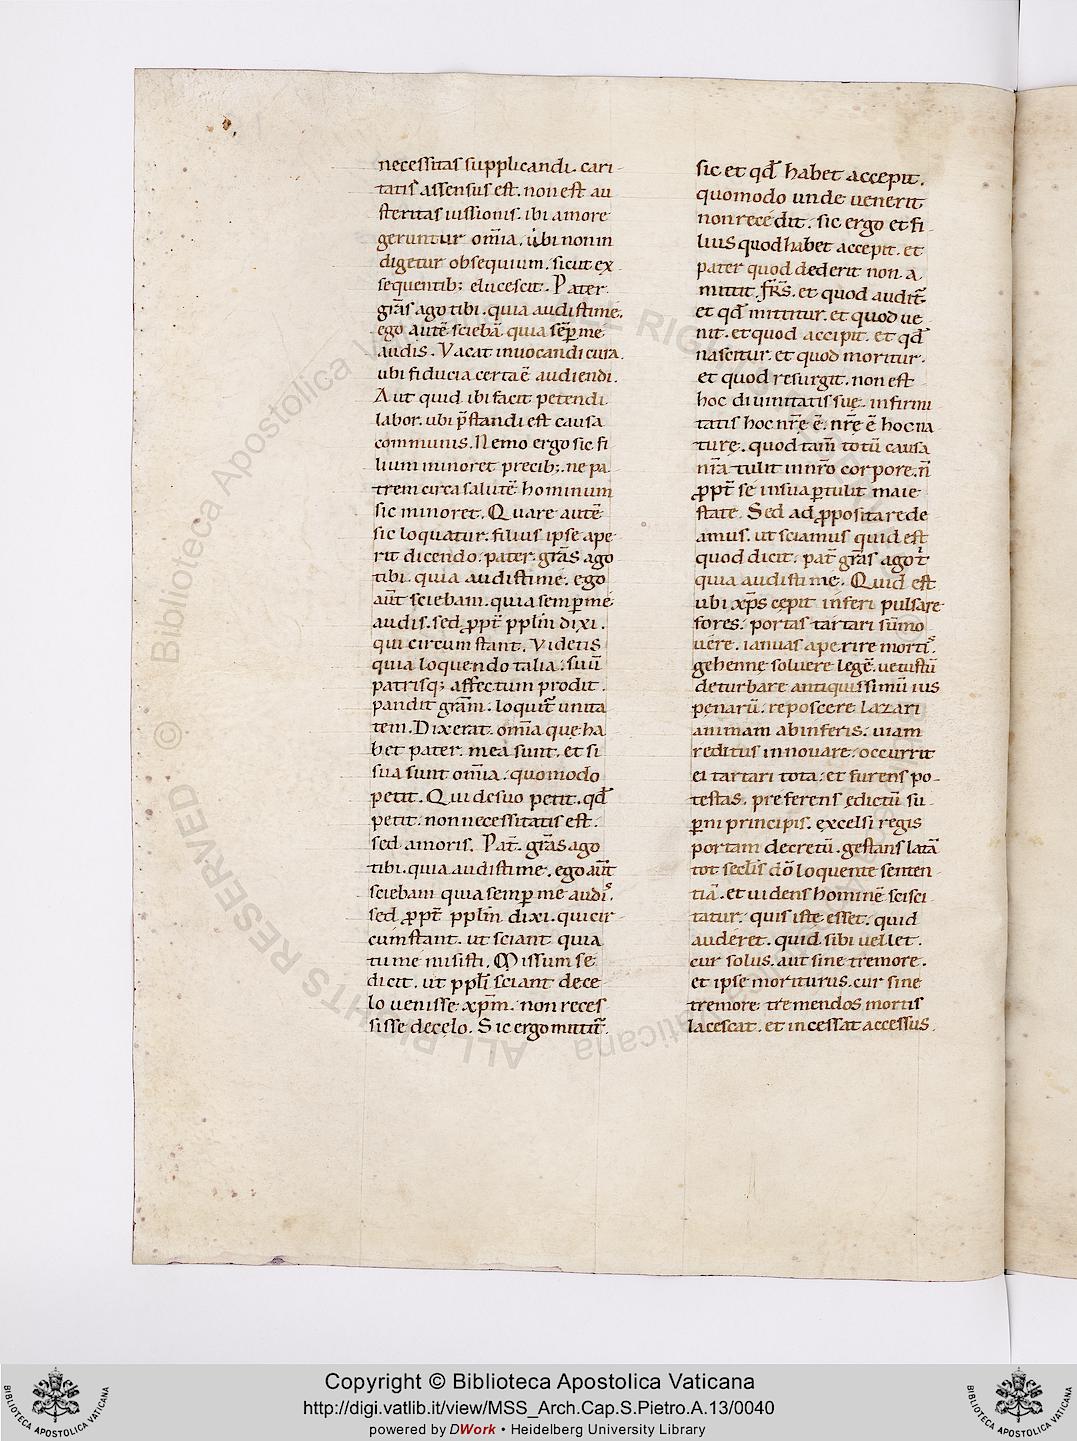 necessitas supplicandi. cari-
tatis assensus est. non est au
steritas iussionis. ibi amore
geruntur om̅ia. ubi non in
digetur obsequium. sicut ex
sequentib; elucescit. Pater
gr̅as ago tibi. quia audisti me.
ego aute̅ scieba̅ quia se̅p me
audis. Vacat inuocandi cura.
ubi fiducia certa e̅ audiendi.
Aut quid ibi facit petendi
labor. ubi p̅standi est causa
communis. Nemo ergo sic fi
lium minoret precib;. ne pa-
trem circa salute̅ hominum
sic minoret. Quare aute̅
sic loquatur. filius ipse ape-
rit dicendo. pater gr̅as ago
tibi. quia audisti me. ego
au̅t sciebam. quia semp me
audis. sed ppt̅ ppl̅m dixi.
qui circum stant. Videtis
quia loquendo talia. suu̅
patrisq; affectum prodit.
pandit gr̅am. loquit̅ unita
tem. Dixerat. om̅ia que ha
bet pater. mea sunt. et si
sua sunt om̅ia. quomodo
petit. Qui de suo petit. qd̅
petit. non necessitatis est.
sed amoris. Pat̅. gr̅as ago
tibi. quia audisti me. ego au̅t
sciebam quia semp me audi.ˢ
sed ppt̅ ppl̅m dixi. qui cir-
cumstant. ut sciant quia
tu me misisti. Missum se
dicit. ut ppl̅i sciant de ce-
lo uenisse xp̅m. non reces
sisse de cęlo. Sic ergo mittit̅.
sic et qd̅ habet accepit.
quomodo unde uenerit
non recedit. sic ergo et fi-
lius quod habet accepit. et
pater quod dederit non a-
mittit. fr̅s. et quod audit̅.
et qd̅ mittitur. et quod ue
nit. et quod accipit. et qd̅
nascitur. et quod moritur.
et quod resurgit. non est
hoc diuinitatis suę. infirmi
tatis hoc nr̅ę e̅. nr̅ę e̅ hoc na
turę. quod tam̅ totu̅ causa
nr̅a tulit in nr̅o corpore. n̅
ppt̅ se in sua ptulit maie
state. Sed ad pposita rede
amus. ut sciamus quid est
quod dicit. pat̅ gr̅as ago t̅
quia audisti me. Quid est
ubi xp̅s cępit inferi pulsare
fores. portas tartari su̅mo
uere. ianuas aperire morti.ˢ
gehenne soluere lege̅. uetustu̅
deturbare antiquissimu̅ ius
pęnaru̅. reposcere lazari
animam ab inferis. uiam
reditus innouare. occurrit
ei tartari tota. et furens po-
testas. preferens edictu̅ su-
pni principis. excelsi regis
portam decretu̅. gestans lata̅
tot secl̅is do̅ loquente senten-
tia̅. et uidens homine̅ scisci
tatur. quis iste esset. quid
auderet. quid sibi uellet.
cur solus. aut sine tremore.
et ipse moriturus. cur sine
tremore tremendos mortis
lacescat. et incessat accessus.
Copyright © Biblioteca Apostolica Vaticana
http://digi.vatlib.it/view/MSS_Arch.Cap.S.Pietro.A.13/0040
powered by DWork • Heidelberg University Library